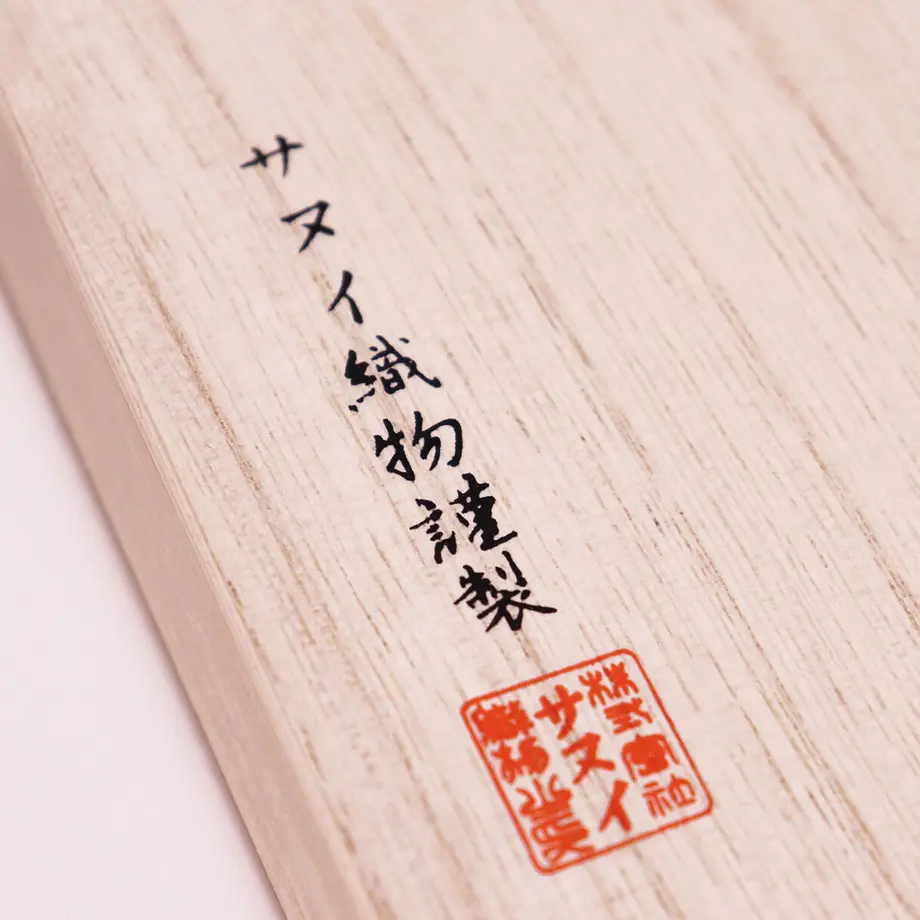 サヌイ織物謹製
株式會社
サヌイ
織物之印